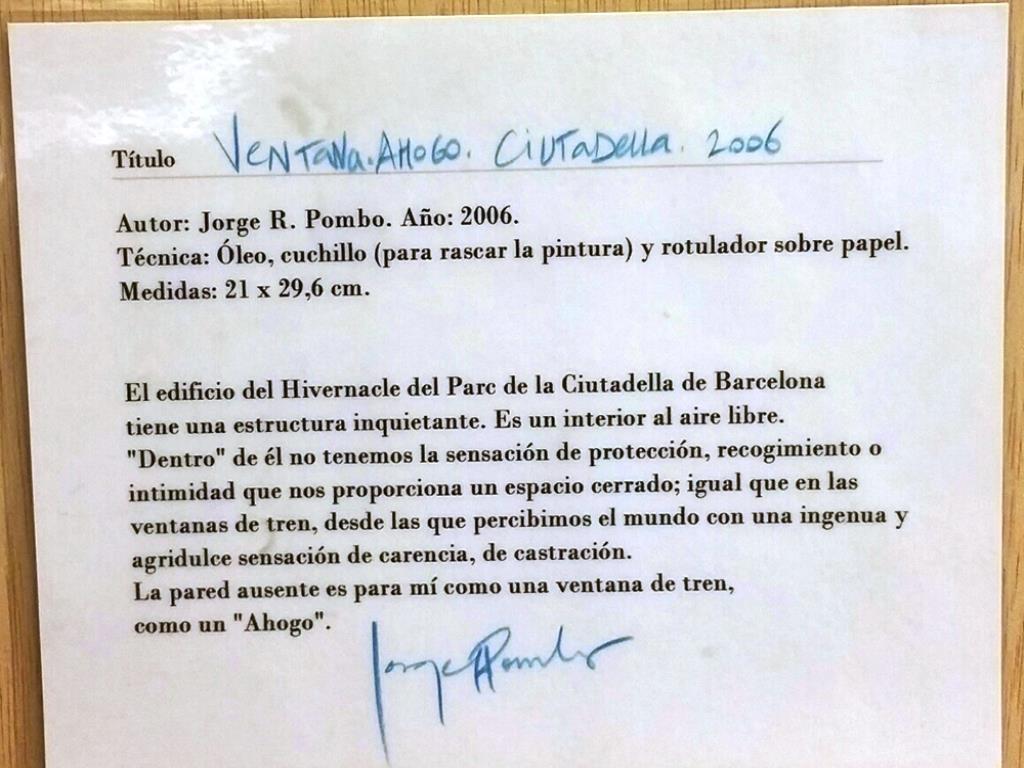 Título VENTANA.AHOGO. CIUTADELLA. 2006
Autor: Jorge R. Pombo. Año: 2006.
Técnica: Óleo, cuchillo (para rascar la pintura) y rotulador sobre papel.
Medidas: 21 x 29,6 cm.
El edificio del Hivernacle del Parc de la Ciutadella de Barcelona
tiene una estructura inquietante. Es un interior al aire libre.
"Dentro" de él no tenemos la sensación de protección, recogimiento o
intimidad que nos proporciona un espacio cerrado; igual que en las
ventanas de tren, desde las que percibimos el mundo con una ingenua y
agridulce sensación de carencia, de castración.
La pared ausente es para mí como una ventana de tren,
como un "Ahogo".
Jorge R Pombo